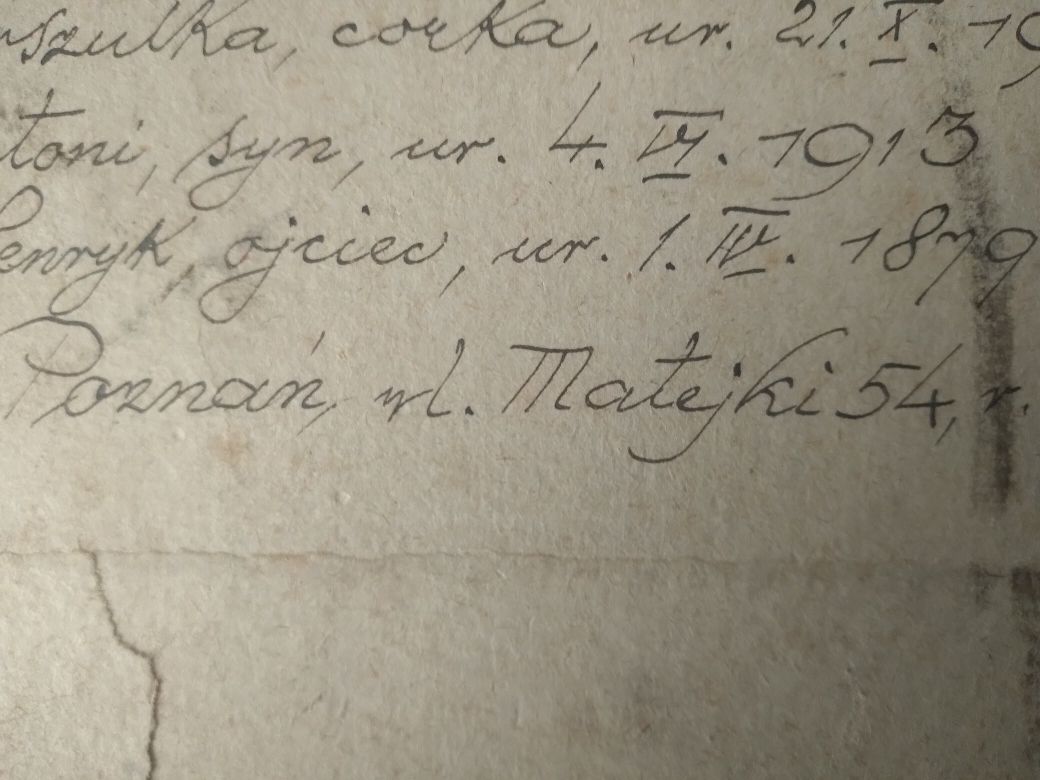 rszulka, corka, ur. 21. X. 19
toni, syn, ur. 4. VI. 1913
Henryk, ojciec, ur. 1. IV. 1879
Poznań, ul. Matejki 54, r.